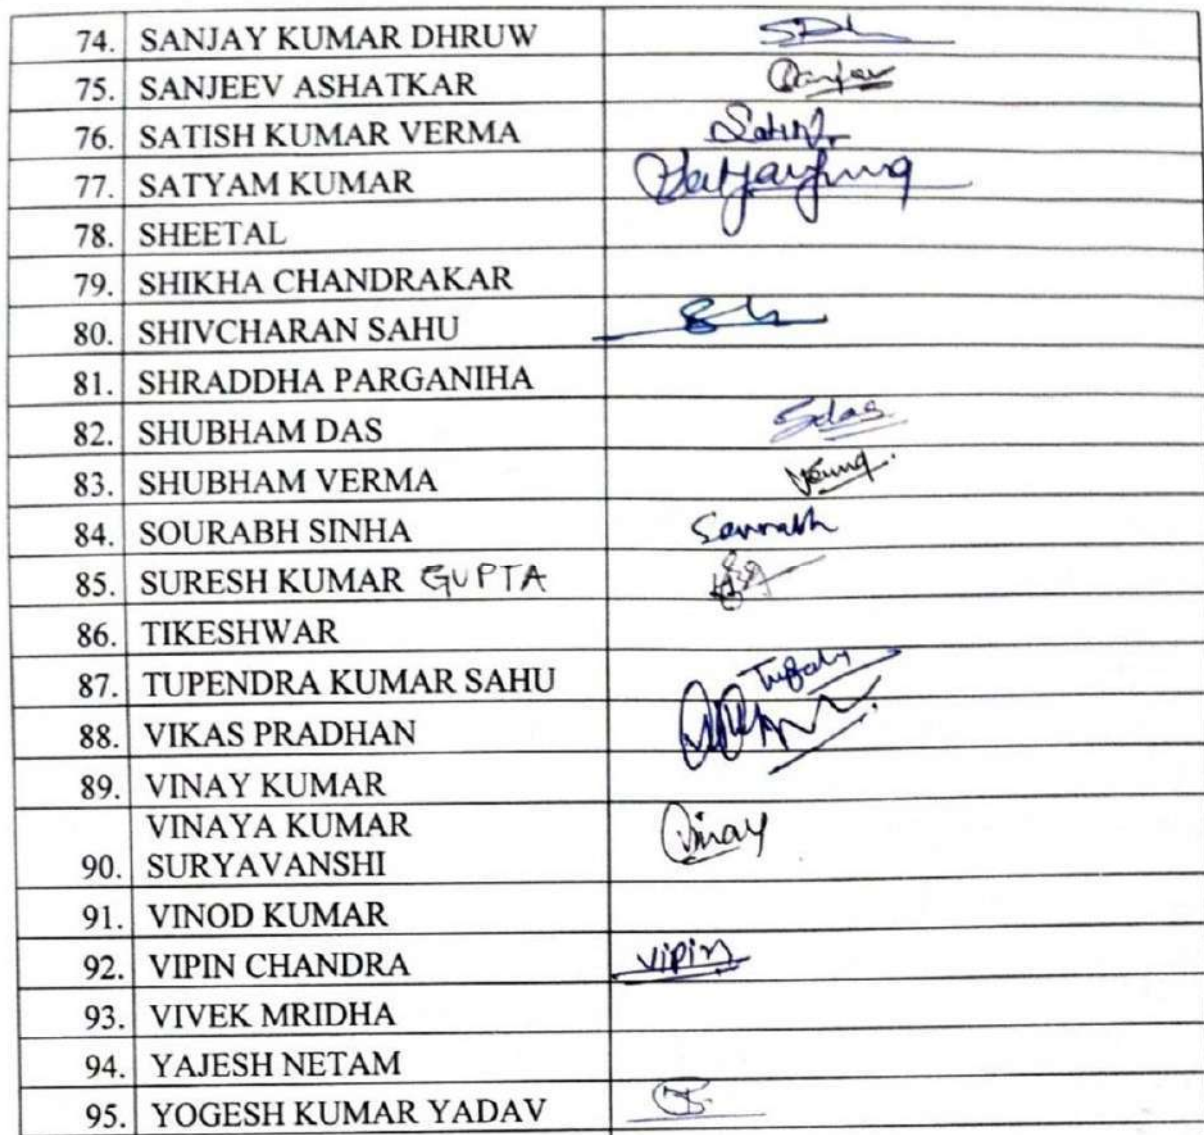 74. SANJAY KUMAR DHRUW
75. SANJEEV ASHATKAR Sanjeev
76. SATISH KUMAR VERMA Satish
77. SATYAM KUMAR
78. SHEETAL
79. SHIKHA CHANDRAKAR
80. SHIVCHARAN SAHU
81. SHRADDHA PARGANIHA
82. SHUBHAM DAS Sdas
83. SHUBHAM VERMA Verma
84. SOURABH SINHA Sourabh
85. SURESH KUMAR GUPTA
86. TIKESHWAR
87. TUPENDRA KUMAR SAHU
88. VIKAS PRADHAN
89. VINAY KUMAR
VINAYA KUMAR
90. SURYAVANSHI Vinay
91. VINOD KUMAR
92. VIPIN CHANDRA vipin
93. VIVEK MRIDHA
94. YAJESH NETAM
95. YOGESH KUMAR YADAV